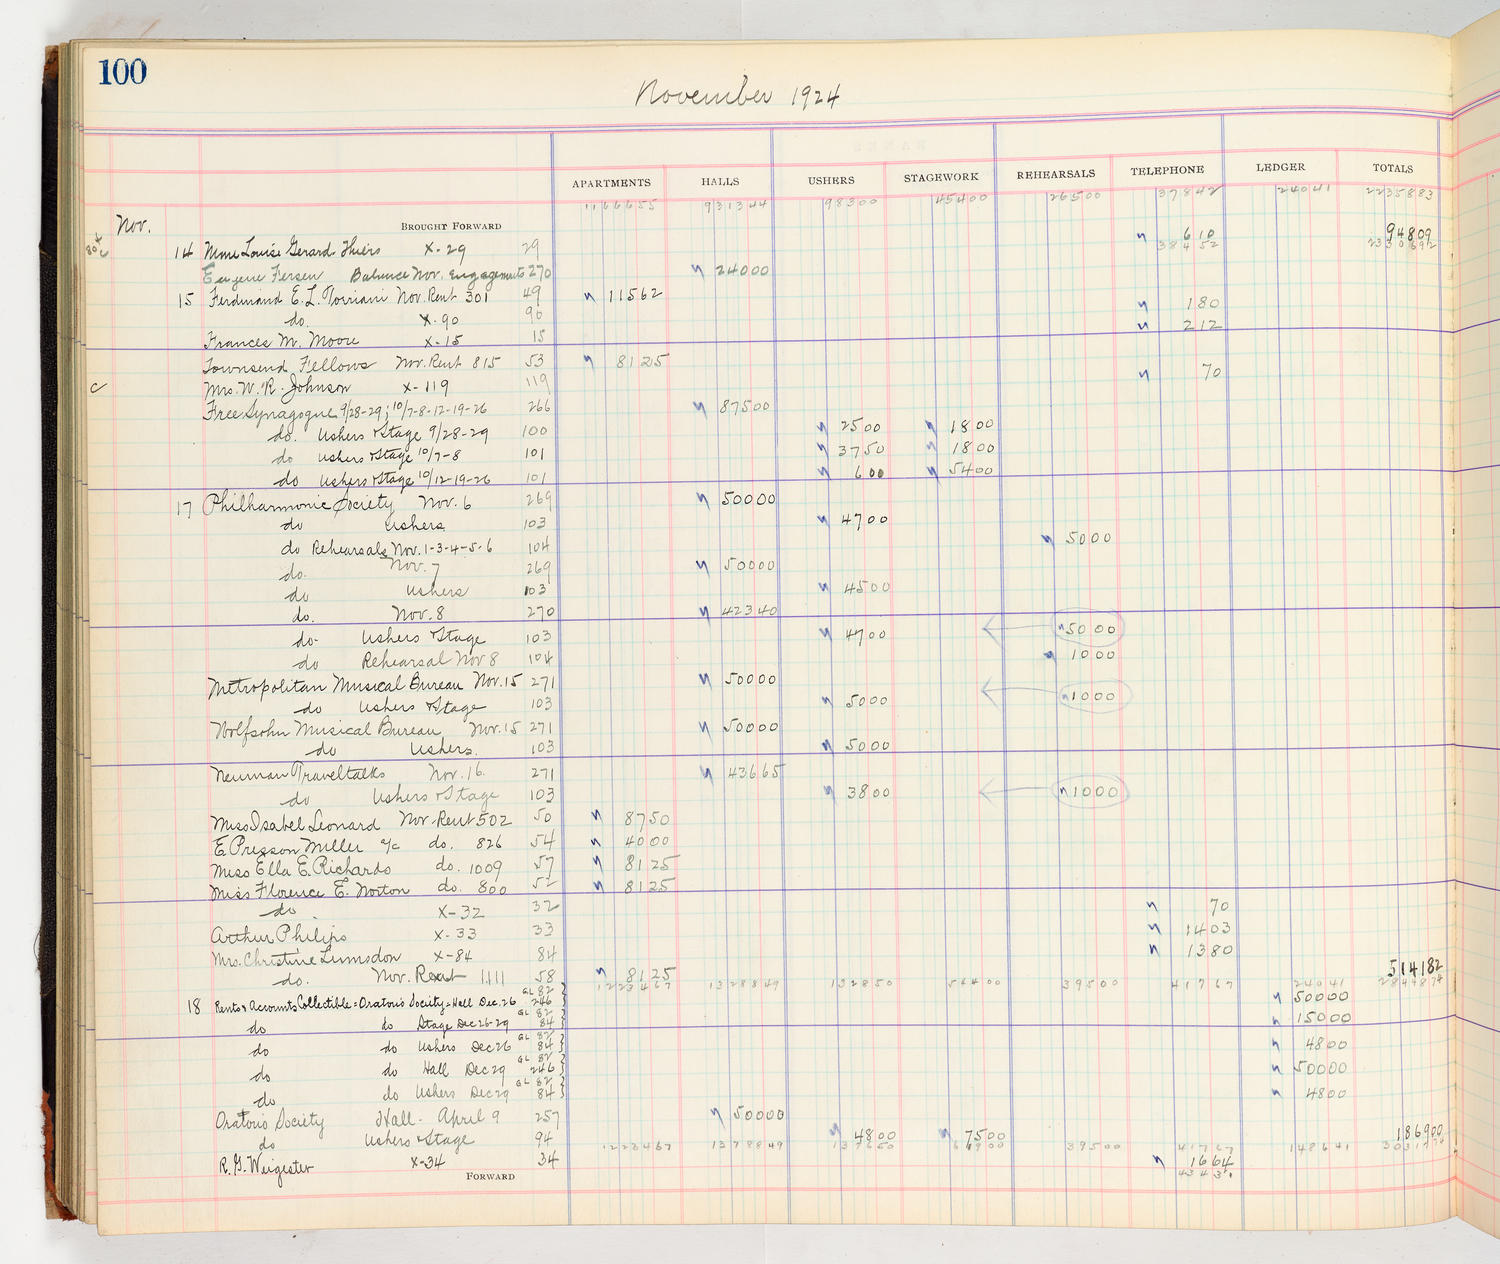 100
November 1924
APARTMENTS HALLS USHERS STAGEWORK REHEARSALS TELEPHONE LEDGER TOTALS
1166655 931344 98300 45400 26500 37842 24041 2235883
Nov. BROUGHT FORWARD
14 Mme Louise Gerard Thiers X-29 29 610 94809
38452 2330692
Eugene Fersen Balance Nov. Engagements 270 24000
15 Ferdinand E. L. Torriani Nov. Rent 301 49 11562
do. X-90 90 180
Frances M. Moore X-15 15 212
Townsend Fellows Nov. Rent 815 53 8125
Mrs. W. R. Johnson X-119 119 70
Free Synagogue 9/28-29; 10/7-8-12-19-26 266 87500
do. Ushers & Stage 9/28-29 100 2500 1800
do Ushers & Stage 10/7-8 101 3750 1800
do Ushers & Stage 10/12-19-26 101 600 5400
17 Philharmonic Society Nov. 6 269 50000
do Ushers 103 4700
do Rehearsals Nov. 1-3-4-5-6 104 5000
do. Nov. 7 269 50000
do Ushers 103 4500
do. Nov. 8 270 42340
do- Ushers & Stage 103 4700 5000
do Rehearsal Nov 8 104 1000
Metropolitan Musical Bureau Nov. 15 271 50000
do Ushers & Stage 103 5000 1000
Wolfsohn Musical Bureau Nov. 15 271 50000
do Ushers. 103 5000
Newman Traveltalks Nov. 16. 271 43665
do Ushers & Stage 103 3800 1000
Miss Isabel Leonard Nov. Rent 502 50 8750
E Presson Miller a/c do. 826 54 4000
Miss Ella E. Richards do. 1009 57 8125
Miss Florence E. Norton do. 800 52 8125
do. X-32 32 70
Arthur Philips X-33 33 1403
Mrs. Christine Lumsdon X-84 84 1380
do. Nov. Rent 1111 58 8125 514182
1223467 1328849 132850 54400 39500 41767 24041
18 Rents & Accounts Collectible = Oratorio Society = Hall Dec. 26 GL 82 246 50000
do do Stage Dec 26-29 GL 82 84 15000
do do Ushers Dec 26 GL 82 84 4800
do do Hall Dec 29 GL 82 246 50000
do do Ushers Dec 29 GL 82 84 4800
Oratorio Society Hall - April 9 257 50000
do Ushers & Stage 94 4800 7500 186900
1223467 1378849 137650 39500 41767 148641
R. G. Weigester X-34 34 1664
FORWARD 43431